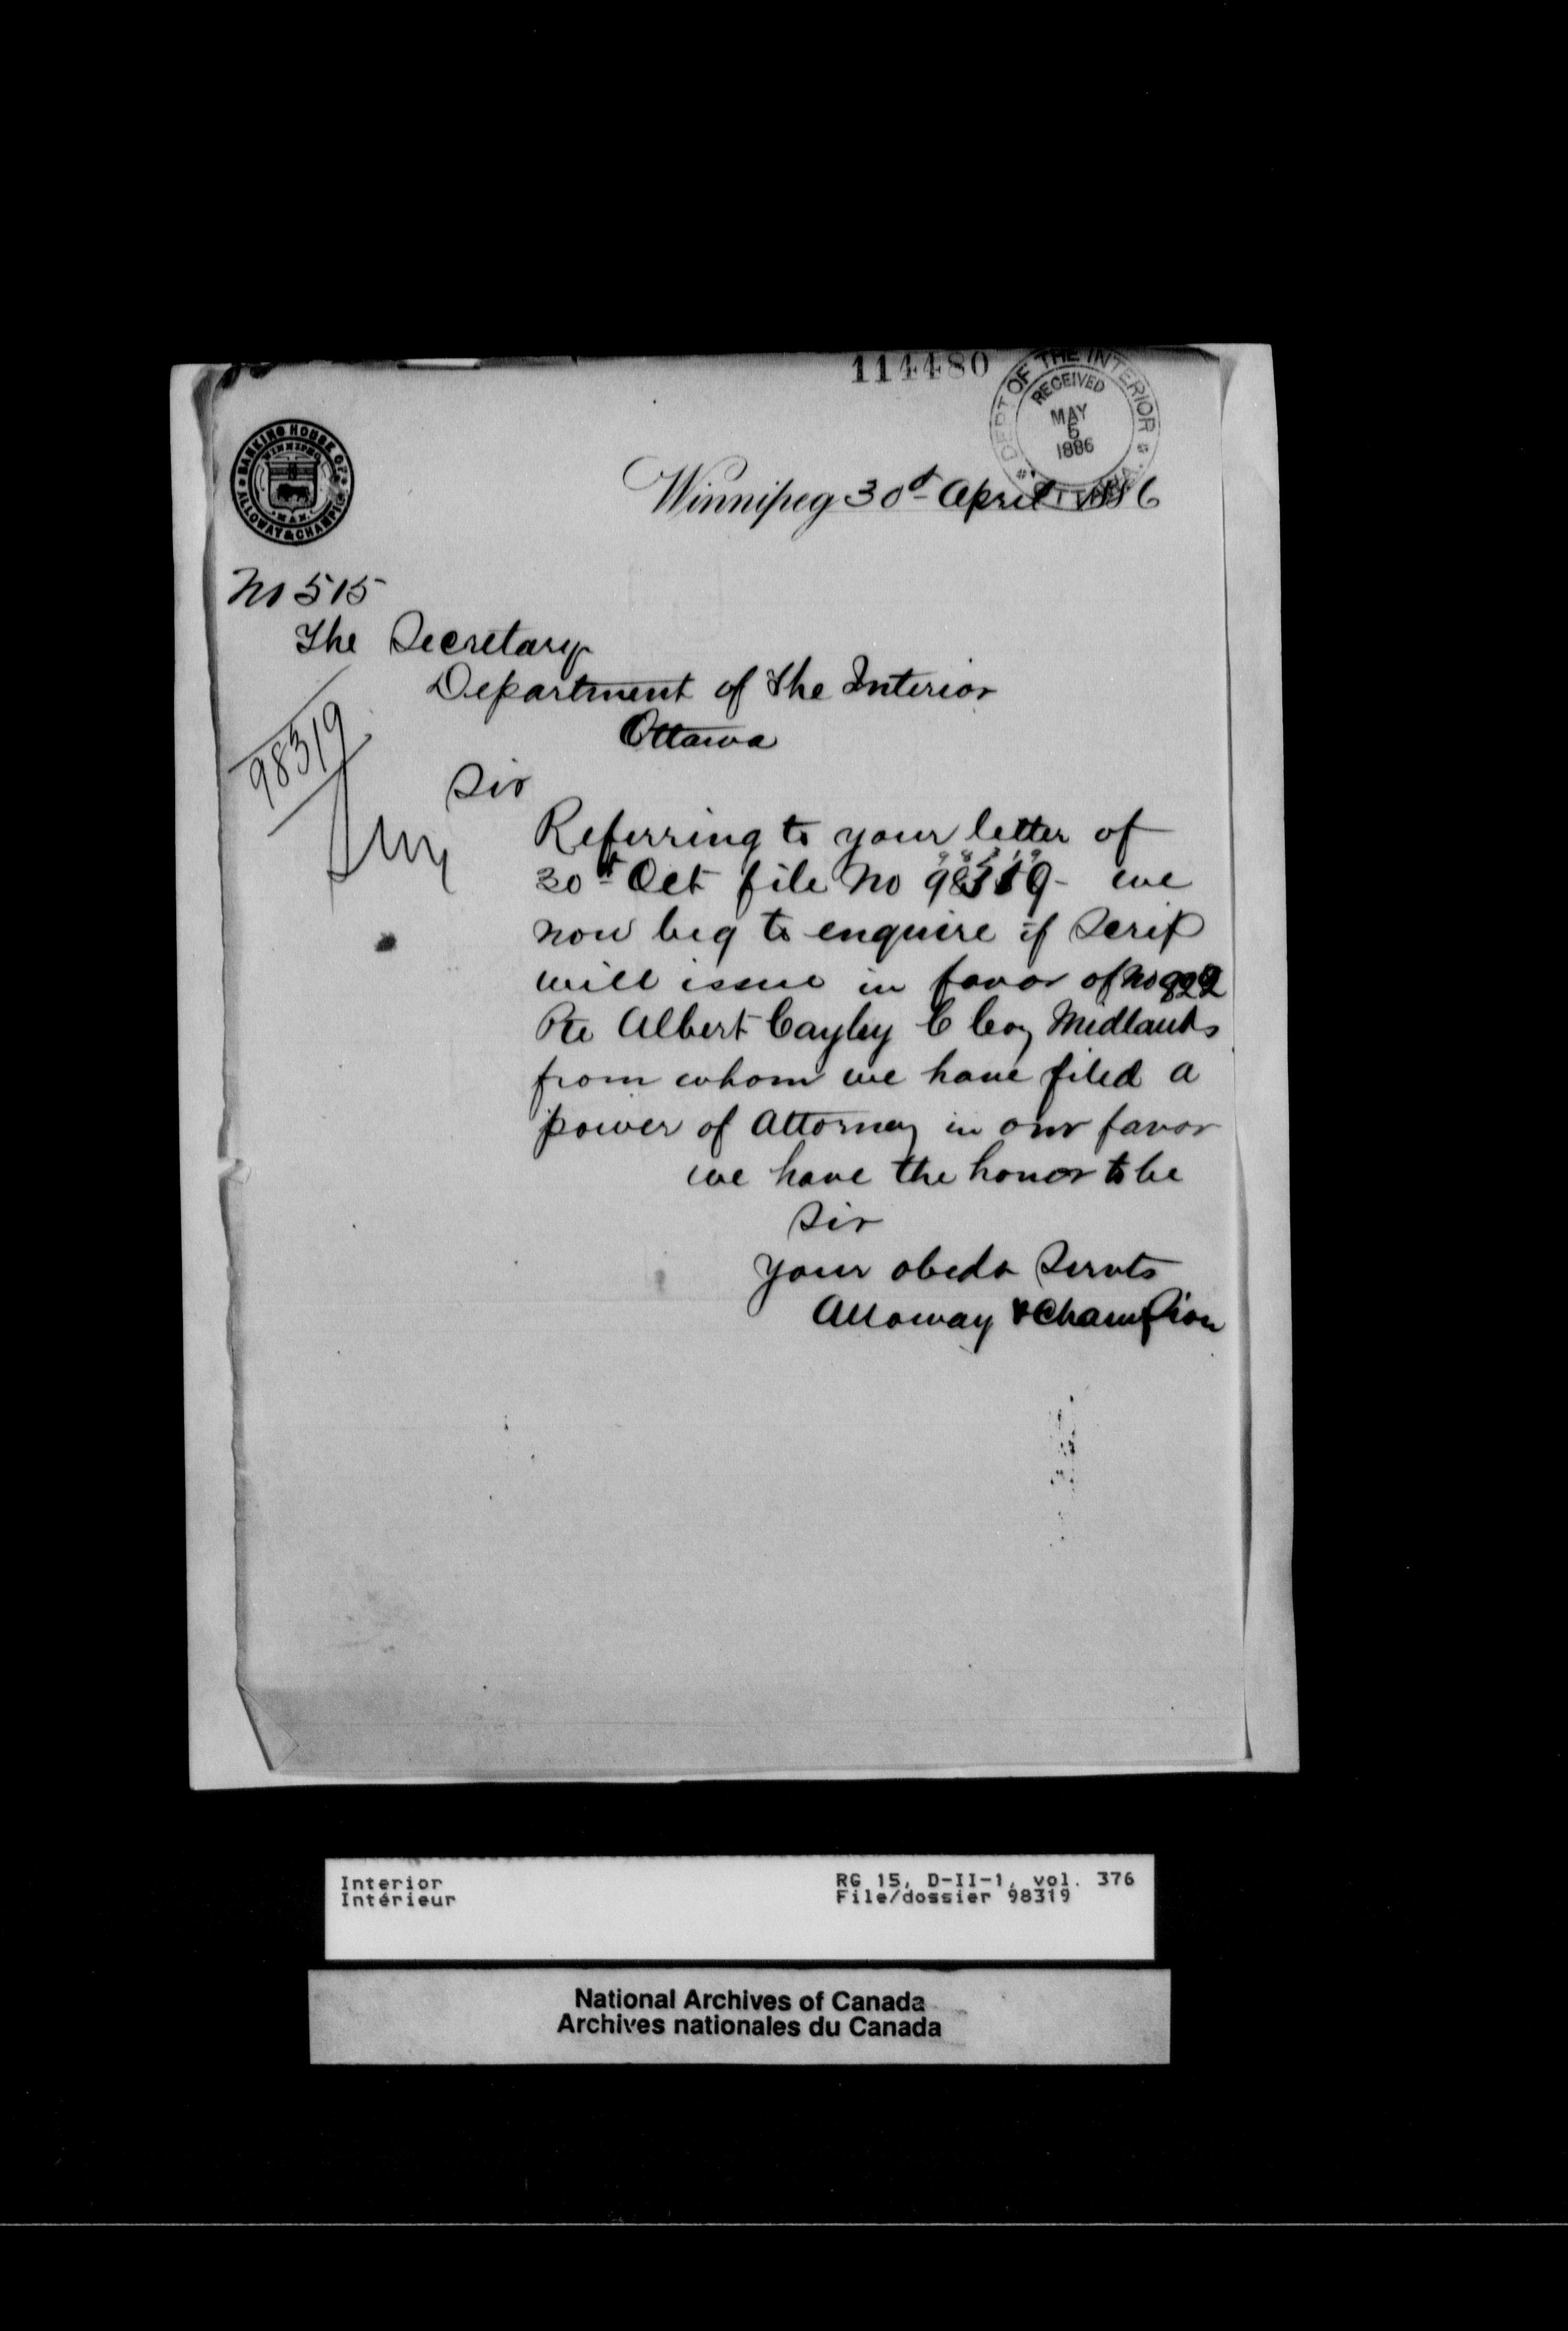 114480
DEPT OF THE INTERIOR
RECEIVED
MAY
5
1886
OTTAWA
BANKING HOUSE OF
WINNIPEG
MAN.
ALLOWAY & CHAMPION
Winnipeg 30th April 1886
No 515
The Secretary
Department of the Interior
Ottawa
98319
Sir
Referring to your letter of
98319
30th Oct file No 98319 - we
now beg to enquire if Scrip
will issue in favor of No
Pte Albert Cayley C Coy Midlands
from whom we have filed a
power of Attorney in our favor
we have the honor to be
Sir
Your obedt Servts
Alloway & Champion
Interior
Intérieur
RG 15, D-II-1, vol. 376
File/dossier 98319
National Archives of Canada
Archives nationales du Canada